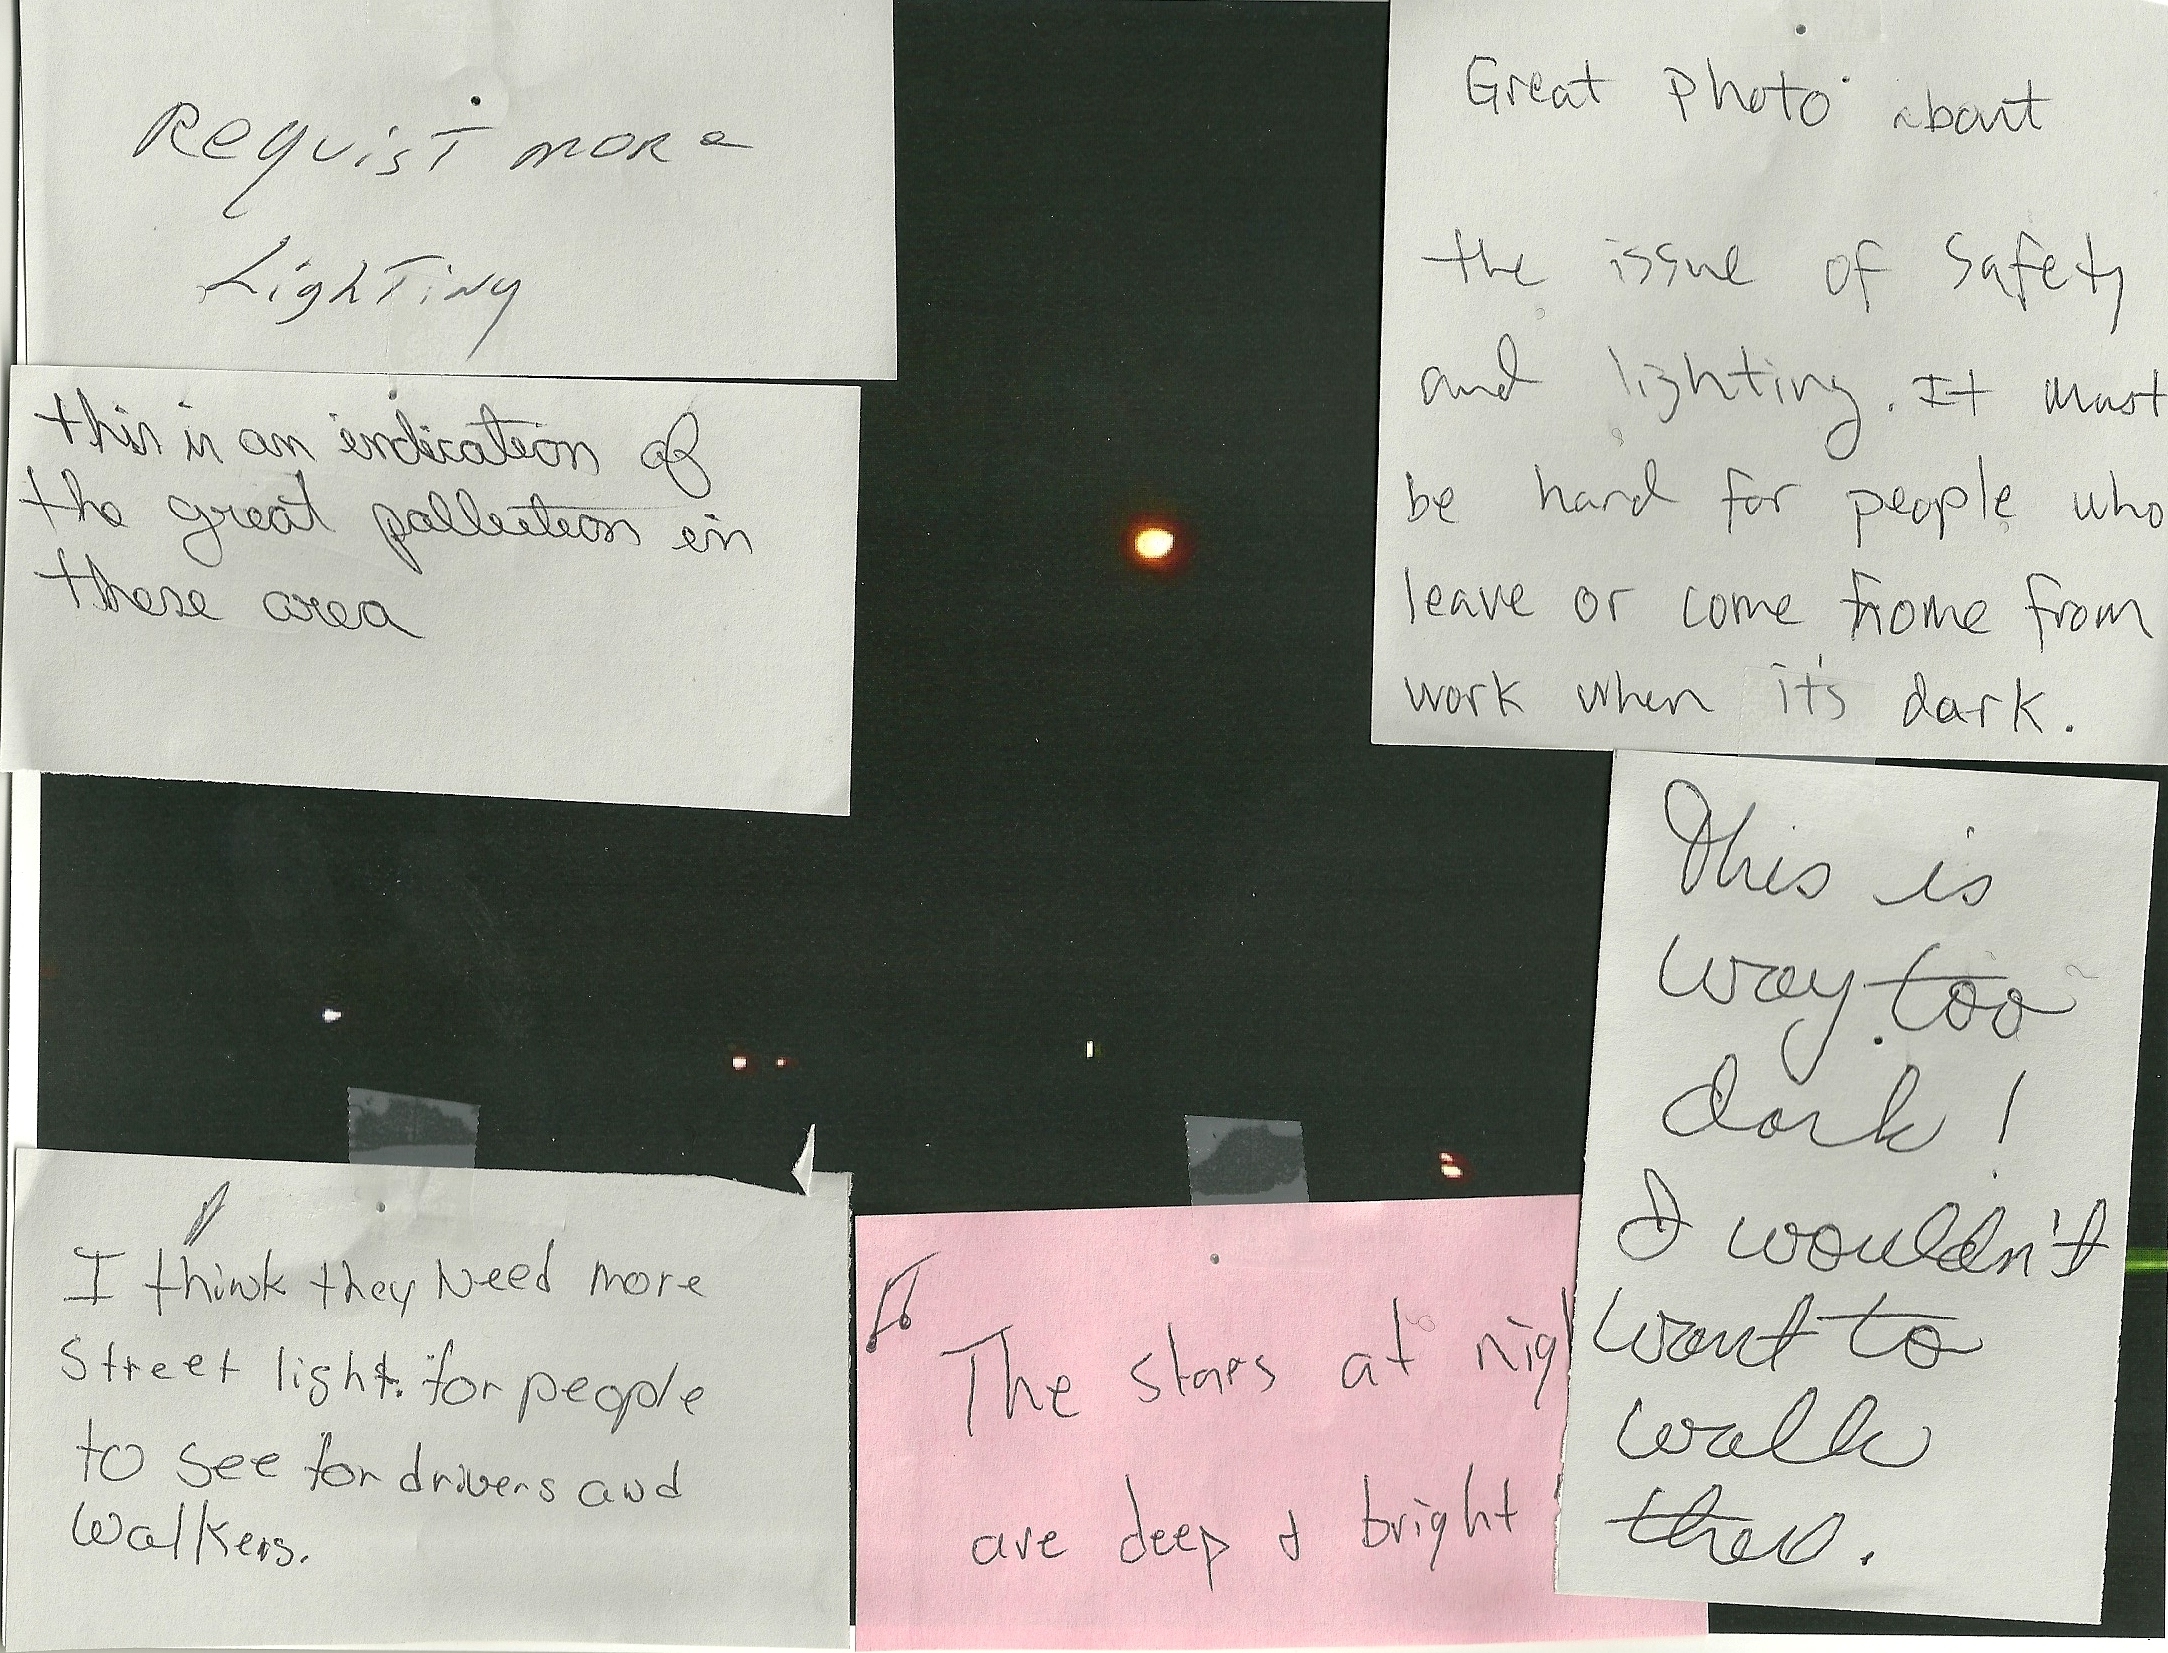 Requist more
Lighting
this is an indication of
the great pollution in
these area
I think they Need more
Street light. for people
to see for drivers and
walkers.
The stars at nig
are deep & bright
Great Photo about
the issue of Safety
and lighting. It must
be hard for people who
leave or come home from
work when it's dark.
This is
way too
dark!
I wouldn't
want to
walk